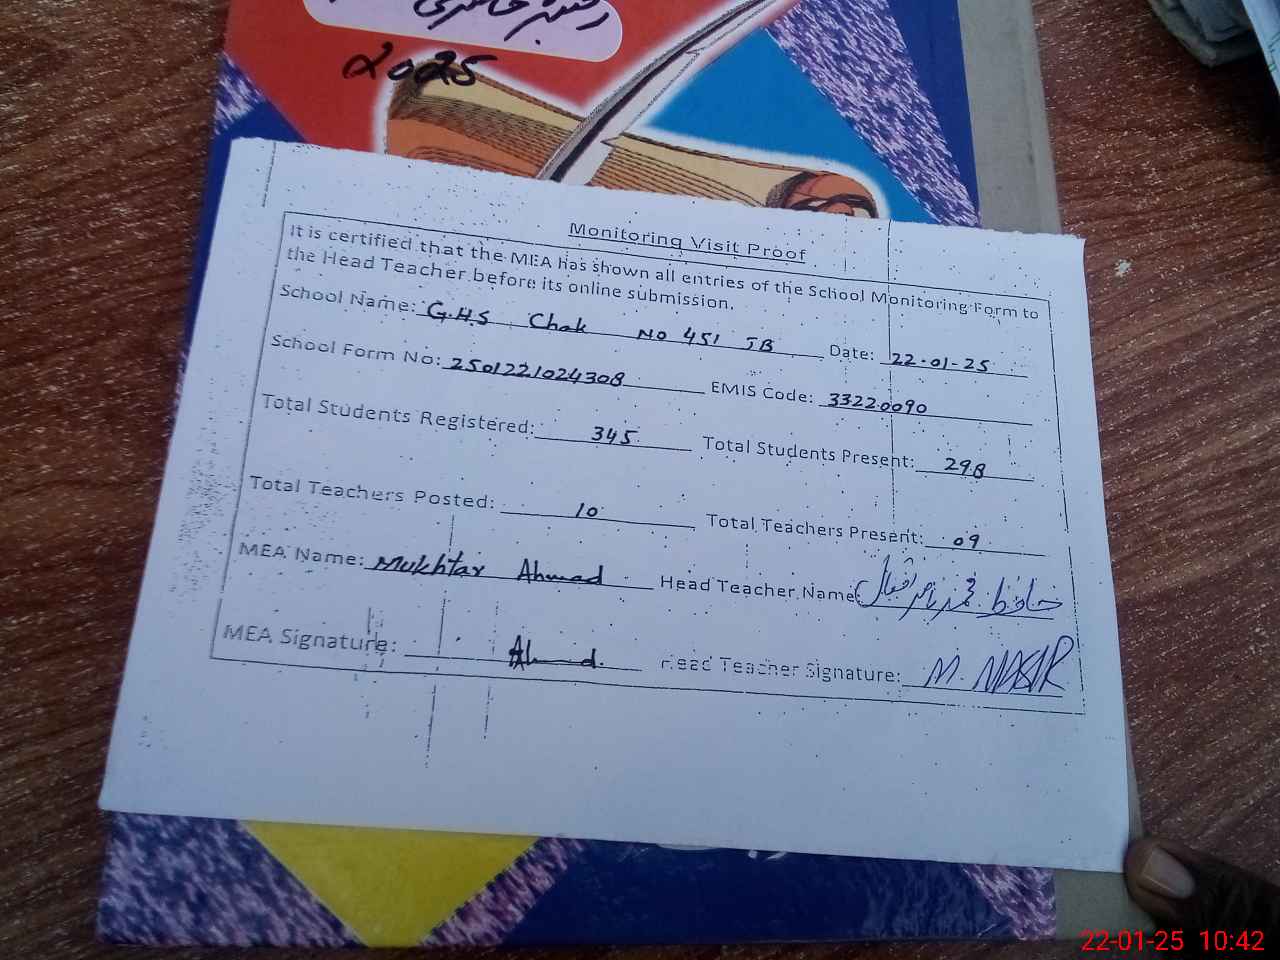 رجسٹر حاضری
2025
Monitoring Visit Proof
It is certified that the MEA has shown all entries of the School Monitoring Form to
the Head Teacher before its online submission.
School Name: G.H.S Chak No 451 JB Date: 22-01-25
School Form No: 2501221024308 EMIS Code: 33220090
Total Students Registered: 345 Total Students Present: 298
Total Teachers Posted: 10 Total Teachers Present: 09
MEA Name: Mukhtar Ahmad Head Teacher Name حافظ محمد ناصر اقبال
MEA Signature: Ahmad. Head Teacher Signature: M. NASIR
22-01-25 10:42